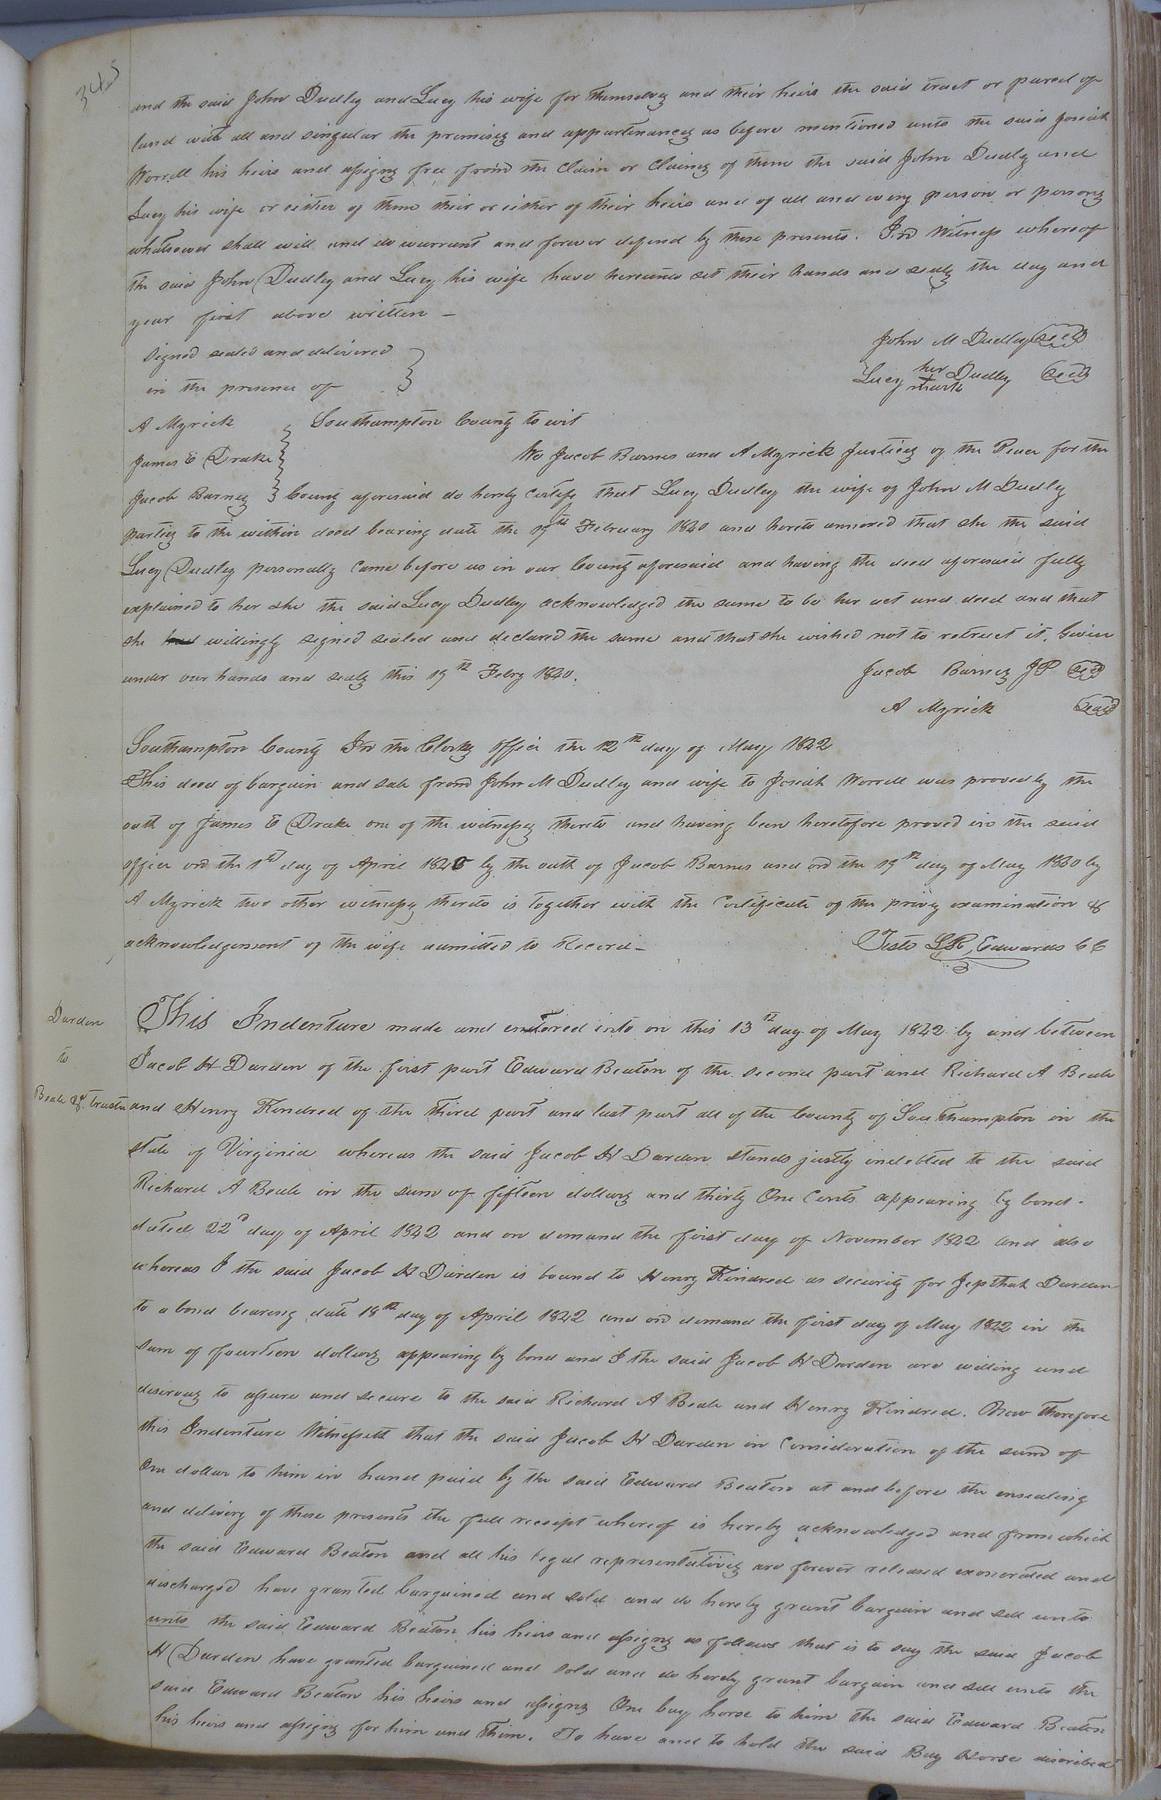 345
and the said John Dudley and Lucy his wife for themselves and their heirs the said tract or parcel of
land with all and singular the premises and appurtinances as before mentioned unto the said Josiah
Worrell his heirs and assigns free from the Claim or Claims of them the said John Dudly and
Lucy his wife or either of them their or either of their heirs and of all and every person or persons
whatsoever shall will and do warrant and forever defend by these presents. In Witness whereof
the said John Dudley and Lucy his wife have hereunto set their hands and seals the day and
year first above written –
Signed sealed and delivered
in the presence of
John M Dudley Seal
Lucy her mark Dudley Seal
A Myrick
Southampton County to wit
James E Drake
We Jacob Barnes and A Myrick Justices of the Peace for the
Jacob Barnes
County aforesaid do hereby certify that Lucy Dudley the wife of John M Dudley
parties to the within deed bearing date the 19th February 1840 and hereto annexed that she the said
Lucy Dudley personally came before us in our County aforesaid and having the deed aforesaid fully
explained to her she the said Lucy Dudley acknowledged the same to be her act and deed and that
she had willingly signed sealed and declared the same and that she wished not to retract it. Given
under our hands and seals this 19th Feby 1840.
Jacob Barnes JP Seal
A Myrick Seal
Southampton County In the Clerks Office the 12th day of May 1842
This deed of bargain and sale from John M Dudley and wife to Josiah Worrell was proved by the
oath of James E Drake one of the witnesses thereto and having been heretofore proved in the said
office on the 1st day of April 1840 by the oath of Jacob Barnes and on the 19th day of May 1840 by
A Myrick two other witnesses thereto is together with the Certificate of the privy examination &
acknowledgement of the wife admitted to Record –
Teste L R Edwards CC
Darden
to
Beale &c trustee
This Indenture made and entered into on this 13th day of May 1842 by and between
Jacob H Darden of the first part Edward Beaton of the second part and Richard A Beale
and Henry Kindred of the third part and last part all of the County of Southampton in the
state of Virginia whereas the said Jacob H Darden stands justly indebted to the said
Richard A Beale in the sum of fifteen dollars and thirty One Cents appearing by bond
dated 22d day of April 1842 and on demand the first day of November 1842 and also
whereas I the said Jacob H Darden is bound to Henry Kindred as security for Jepthah Darden
to a bond bearing date 18th day of April 1842 and on demand the first day of May 1842 in the
sum of fourteen dollars appearing by bond and I the said Jacob H Darden are willing and
desirous to assure and secure to the said Richard A Beale and Henry Kindred. Now Therefore
this Indenture Witnesseth that the said Jacob H Darden in Consideration of the sum of
One dollar to him in hand paid by the said Edward Beaton at and before the ensealing
and delivery of these presents the full receipt whereof is hereby acknowledged and from which
the said Edward Beaton and all his legal representatives are forever released exonerated and
discharged have granted bargained and sold and do hereby grant bargain and sell unto
unto the said Edward Beaton his heirs and assigns as follows that is to say the said Jacob
H Darden have granted bargained and sold and do hereby grant bargain and sell unto the
said Edward Beaton his heirs and assigns One bay horse to him the said Edward Beaton
his heirs and assigns for him and them. To have and to hold the said Bay Horse discribed